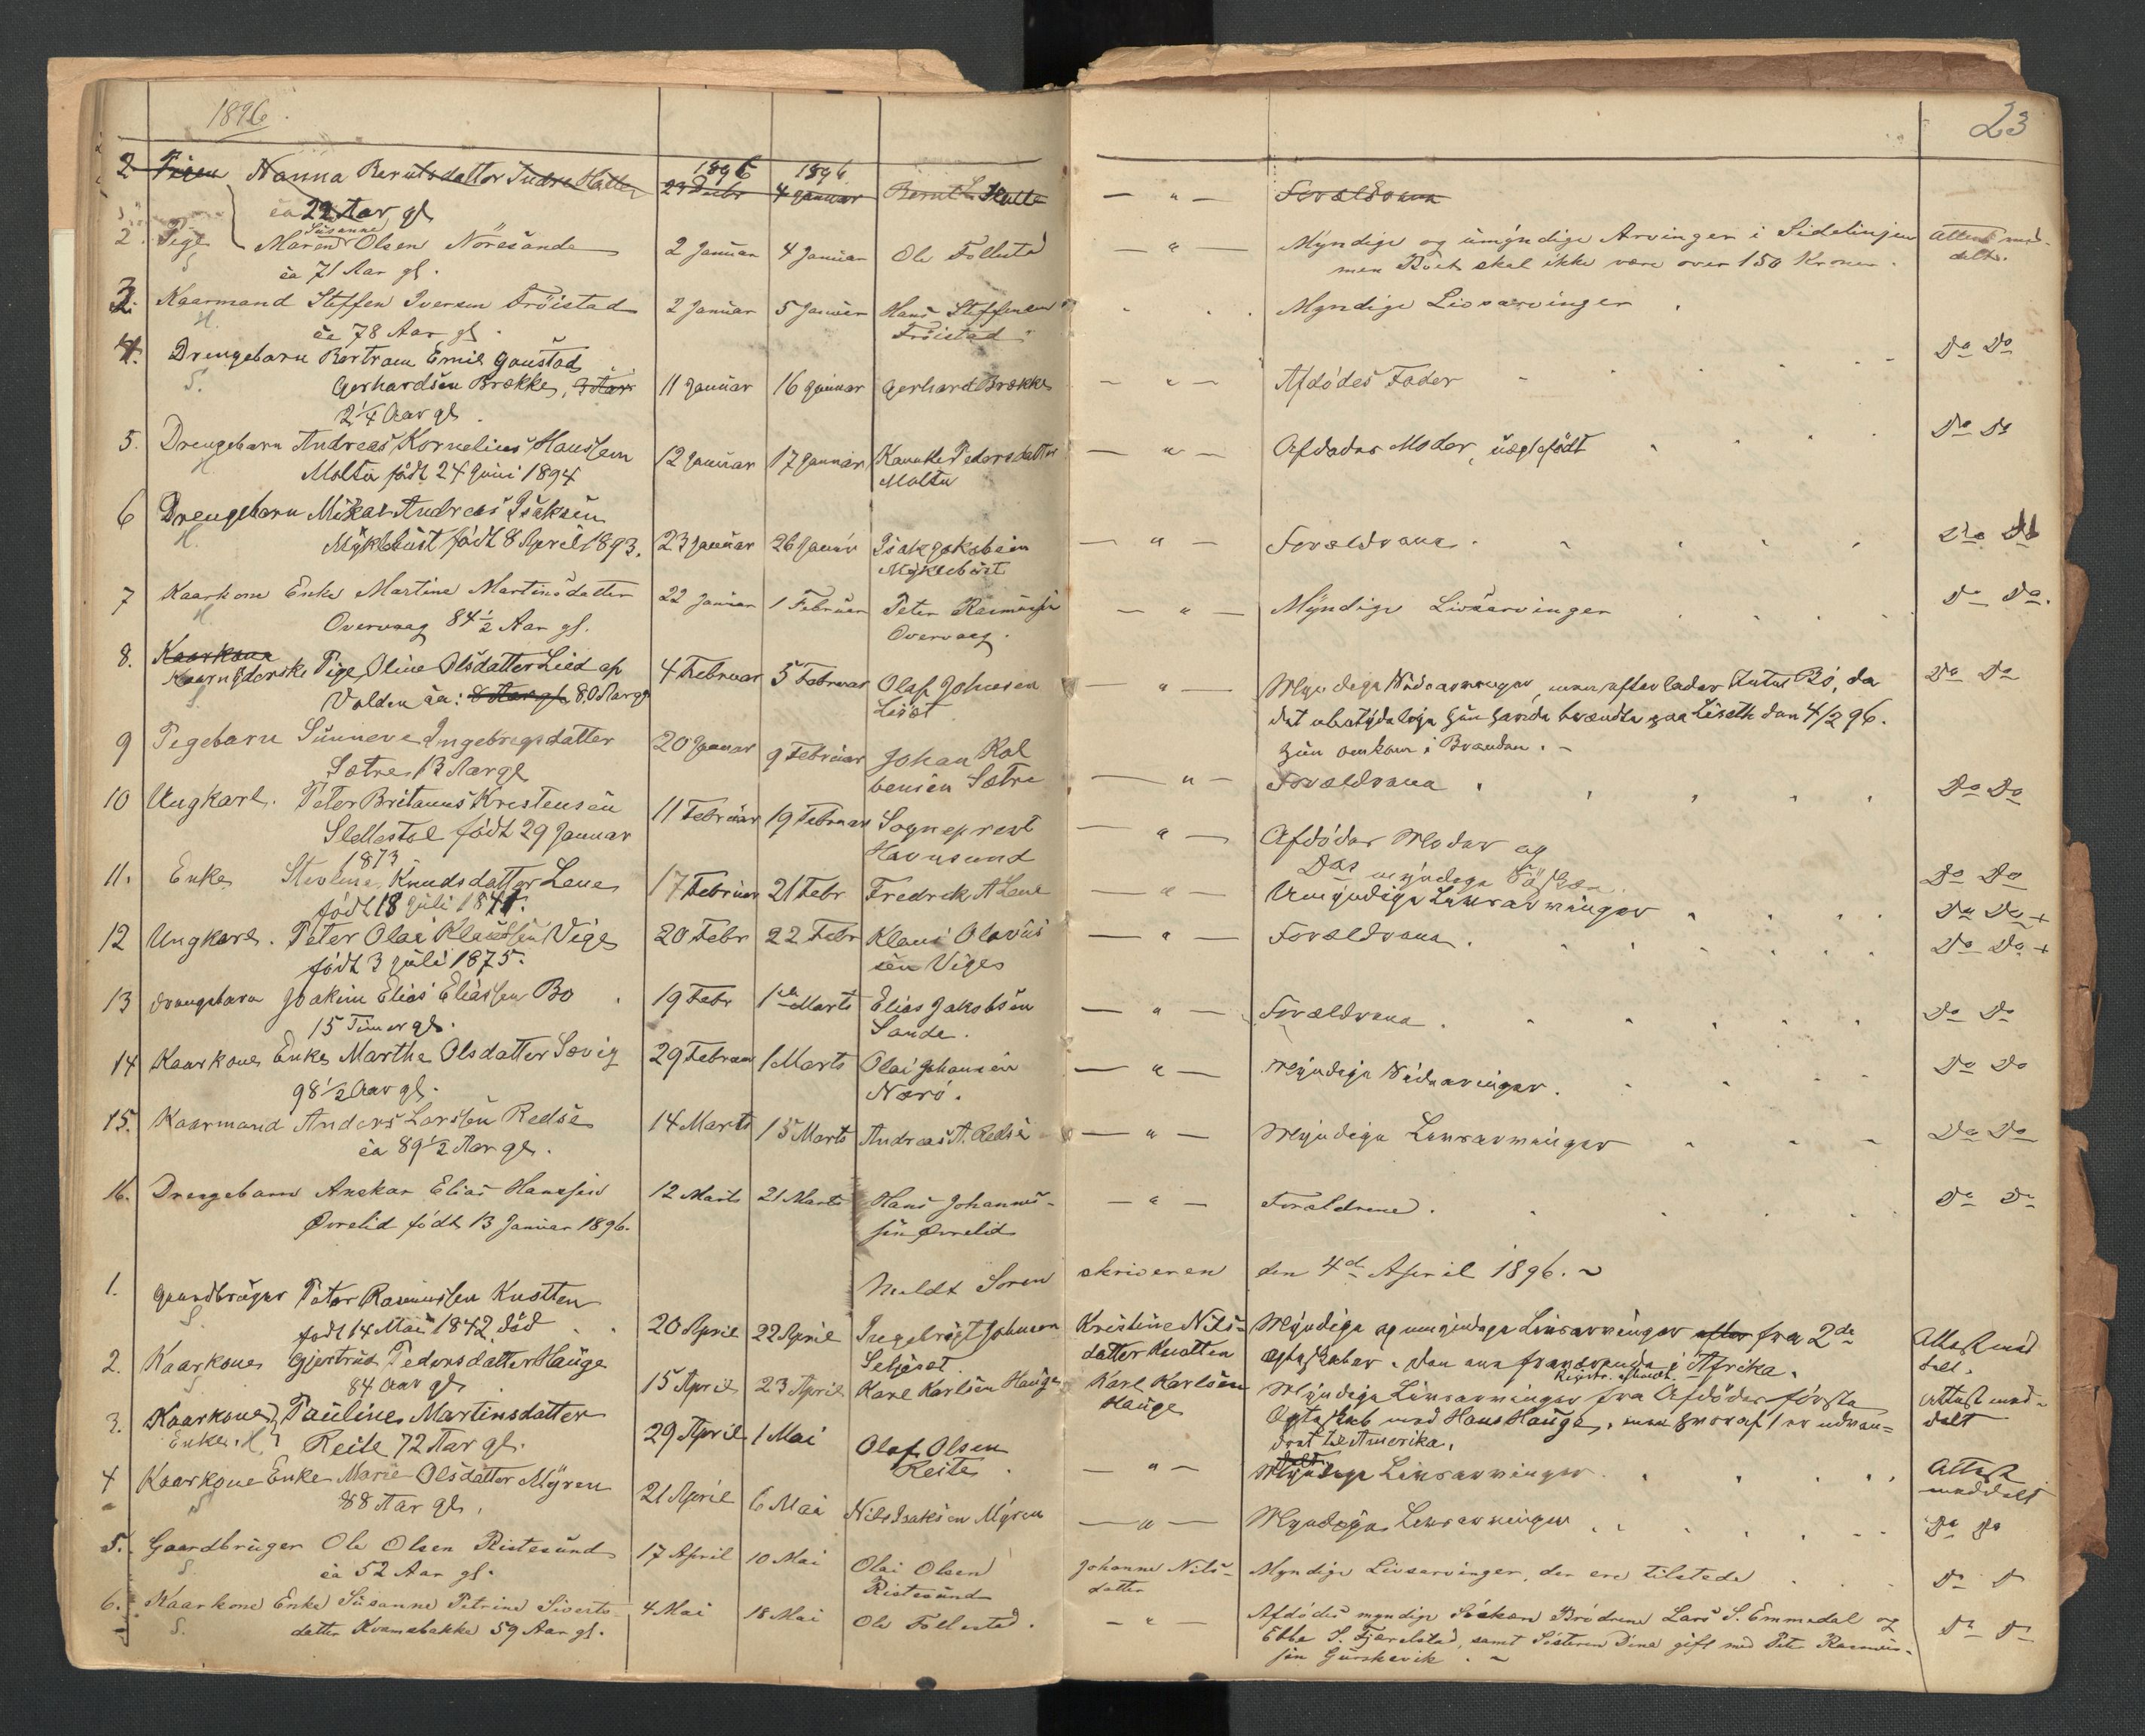 1896.
23
2 Pigen Hanna Berntsdatter Indre Hatle 1896 23 Debr 1896 4 Januar Bernt L Hatle — " — Forældrene
ca 22 Aar gl
2. Pige Maren Susanne Olsen Nöresande 2 Januar 4 Januar Ole Follestad — " — Myndige og umyndige Arvinger i Sidelinjen Attest med-
S ca 71 Aar gl. men Boet skal ikke være over 150 Kroner. delt.
3. Kaarmand Steffen Iversen Tröistad 2 Januar 5 Januar Hans Steffensen Myndige Livsarvinger
H. ca 78 Aar gl. Tröistad Do Do
4. Drengebarn Bertram Emil Gaustad
S. Gerhardsen Brække, 2 Aar 11 Januar 16 Januar Gerhard Brække — " — Afdödes Fader
2 1/4 Aar gl.
5. Drengebarn Andreas Kornelius Hanssen 12 Januar 17 Januar Pedersdatter — " — Afdödes Moder, uægtefödt Do Do
H Moltu födt 24 Juni 1894 Moltu
6 Drengebarn Mikal Andreas Isaksen
H. Myklebust födt 8 April 1893. 23 Januar 26 Januar Isak Jakobsen — " — Forældrene. Do Do
Myklebust
7 Kaarkone Enke Martine Martinsdatter 22 Januar 1 Februar Peter Rasmussen — " — Myndige Livsarvinger Do Do.
H. Overvaag 84 1/2 Aar gl. Overvaag.
8. Kaarkone
Kaarnyderske Pige Oline Olsdatter Lied af 4 Februar 5 Februar Olaf Johnsen — " — Myndige Sidearvinger, men efterlader Intet Bo, da Do Do
S Volden ca: 8 Aar gl 80 Aar gl Lisöt det ubetydelige hun havde brændte paa Liseth den 4/2 96.
hun omkom i Branden. —
9 Pigebarn Sunneve Ingebregtsdatter 20 Januar 9 Februar Johan Kol — " — Forældrene Do Do
Sætre 13 Aar gl bensen Sætre
10 Ungkarl. Peter Britanus Kristensen 11 Februar 19 Februar Sogneprest — " — Afdödes Moder og
Slettestöl födt 29 Januar Havnsund umyndige Söskn. Do Do
1873
11. Enke Stevline Knudsdatter Lene 17 Februar 21 Febr Fredrik A Lene — " — Umyndige Livsarvinger Do Do +
födt 18 Juli 1841.
12 Ungkarl. Peter Olai Klaussen Viges 20 Febr 22 Febr Klaus Olavus — " — Forældrene. Do Do +
födt 3 Juli 1875. sen Viges
13 Drengebarn Joakim Elias Eliassen Bo 19 Febr 1ste Marts Elias Jakobsen — " — Forældrene. Do Do
15 Timer gl. Sande.
14 Kaarkone Enke Martha Olsdatter Sævig 29 Februar 1 Marts Olai Johansen — " — Myndige Sidearvinger. Do Do
98 1/2 Aar gl. Nærö.
15. Kaarmand Anders Larssen Redse 14 Marts 15 Marts Andreas A. Redse — " — Myndige Livsarvinger Do Do
ca 89 1/2 Aar gl.
16. Drengebarn Anskar Elias Hanssen 12 Marts 21 Marts Hans Johannes- — " — Forældrene. Do Do
Övrelid födt 13 Januar 1896. sen Övrelid
Meldt Soren skriveren den 4de April 1896. ~
1. Gaardbruger Peter Rasmussen Knotten
S. födt 14 Mai 1842 död 20 April 22 April Ingebrigt Johnsen Kristine Nils- Myndige og umyndige Livsarvinger efter fra 2de Attest med
datter Knotten Ægteskaber. Den ene fraværende i Afrika. delt.
2. Kaarkone Gjertrud Pedersdatter Hauge 15 April 23 April Karl Karlsen Hauge Karl Karlsen Myndige Livsarvinger fra Afdödes förste Attest med-
S 84 Aar gl. Hauge Ægteskab med Hans Hauge, men hvoraf 1 er udvan- delt
dret til Amerika.
3. Kaarkone Pauline Martinsdatter 29 April 1 Mai Olaf Olsen — " — Myndige Livsarvinger. Attest
Enke. H. Reite 72 Aar gl. Reite. meddelt
4 Kaarkone Enke Marie Olsdatter Myren 21 April 6 Mai Nils Isaksen Myren — " — Myndige Livsarvinger Do Do
S 88 Aar gl.
5. Gaardbruger Ole Olsen Ristesund 17 April 10 Mai Olai Olsen Johanne Nils- Myndige Livsarvinger, der ere tilstede Do D
S. ca 52 Aar gl. Ristesund datter
6. Kaarkone Enke Susanne Petrine Siverts- 4 Mai 18 Mai Ole Follestad. — " — Afdödes myndige Söskn Brödrene Lars S. Emmedal og Do Do
S. datter Kvamsbakke 59 Aar gl. Ebbe S. Fjærelstad, samt Sösteren Dina gift med Peter Rasmus-
sen Gurskevik. ~